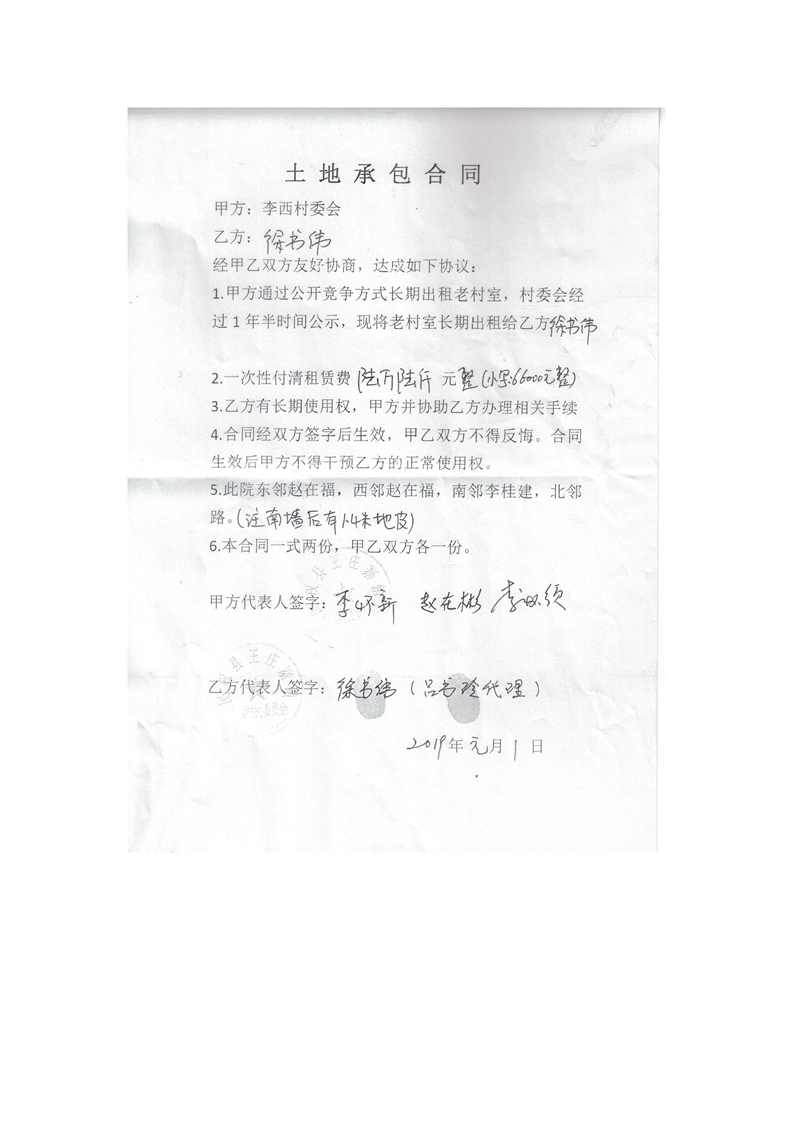 土地承包合同
甲方：李西村委会
乙方：徐书伟
经甲乙双方友好协商，达成如下协议：
1.甲方通过公开竞争方式长期出租老村室，村委会经
过1年半时间公示，现将老村室长期出租给乙方徐书伟
2.一次性付清租赁费陆万陆仟 元整(小写:66000元整)
3.乙方有长期使用权，甲方并协助乙方办理相关手续
4.合同经双方签字后生效，甲乙双方不得反悔。合同
生效后甲方不得干预乙方的正常使用权。
5.此院东邻赵在福，西邻赵在福，南邻李桂建，北邻
路。(注南墙后有1.4米地皮)
6.本合同一式两份，甲乙双方各一份。
县王庄寨
甲方代表人签字：李怀新 赵在彬
县王庄寨
乙方代表人签字：徐书伟（吕书珍代理）
2019年元月1日